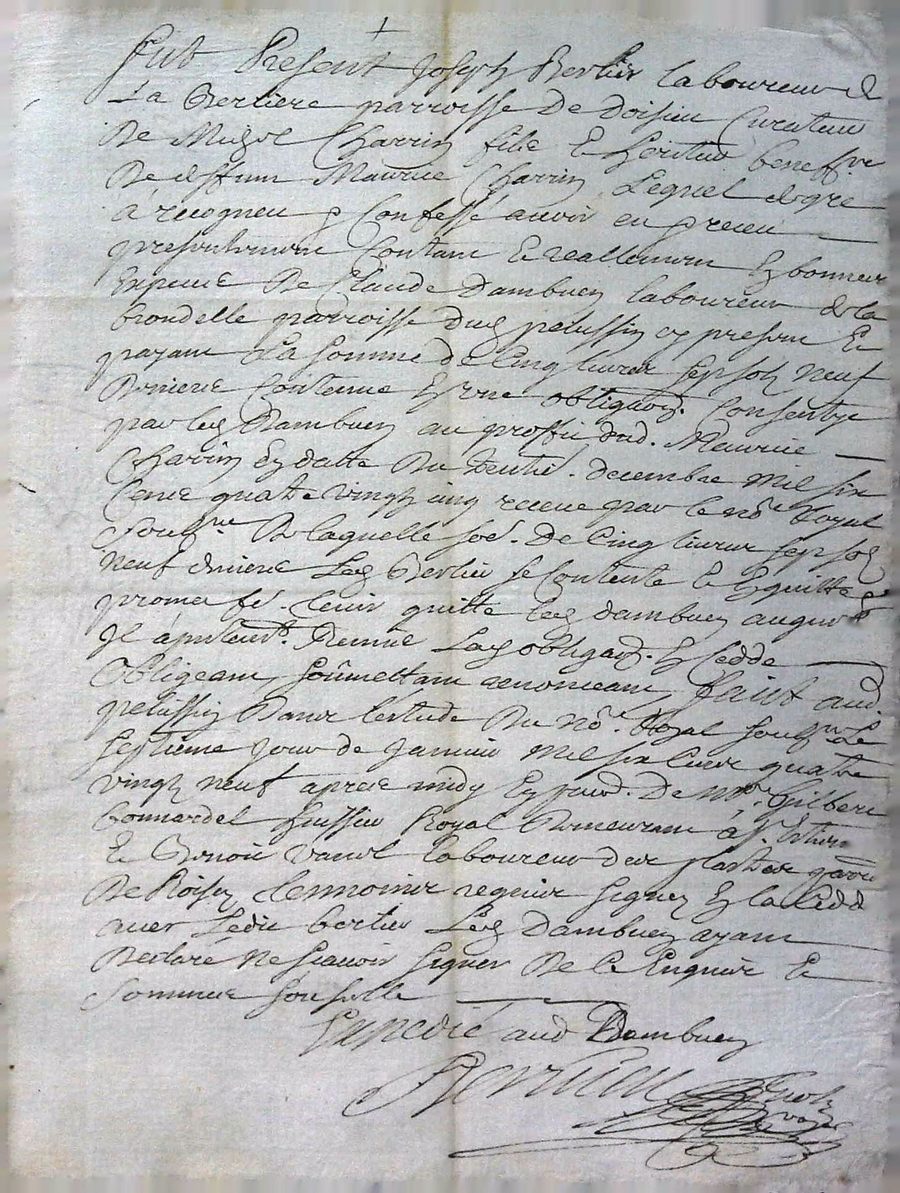 Fut Present Joseph Berlier laboureur de
La Berliere parroisse de doisieu Curateur
De Charrin fils & heritier beneff.re
De deffunt Maurice Charrin Lequel de gre
a recogneu & Confessé avoir eu & receu
presentement Contant & reallement En bonnes
Especes De Claude Dambuen laboureur de la
brondelle parroisse dud pelussin cy present &
payant La somme de Cinq livres sep solz neuf
Deniers Contenue En une obliguon. Consentye
par led Dambuen au proffit dud. Maurice
Charrin En datte Du decembre mil six
Cens quatre vingtz cinq receue par le no.re Royal
soubz.ne De laquelle soe. De Cinq livres sep solz
neuf deniers Led Berlier se Contente & En quitte &
promet fe. tenir quitte led dambuen auquel
Il a Remis Lad obligaon. & Cedde
Obligeant, soûmettant renonceant, Faict aud.
pelussin Dans l'estude Du no.re Royal soubz.ne Le
septieme Jour de Janvier mil six Cens quatre
vingtz neuf apres midy En pnce. De m.re Gilbert
bonnardel huissier Royal Demeurant à
& Benoit laboureur des parr.e
De Roisey tesmoins requis signez En la Cedd
avec Ledit berlier Led Dambuen ayant
Declaré ne scavoir signer De Ce Enquis &
sommé
Expedié aud Dambuen